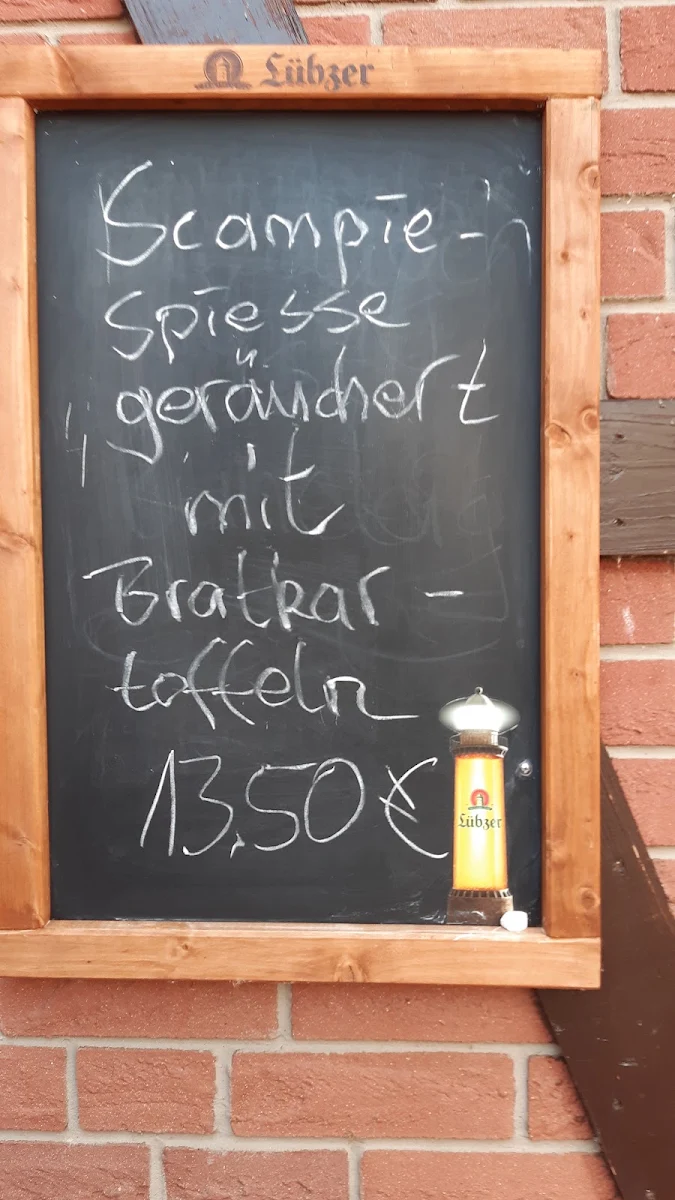 Lübzer
Scampie-
spiesse
geräuchert
mit
Bratkar-
toffeln
13,50 €
Lübzer